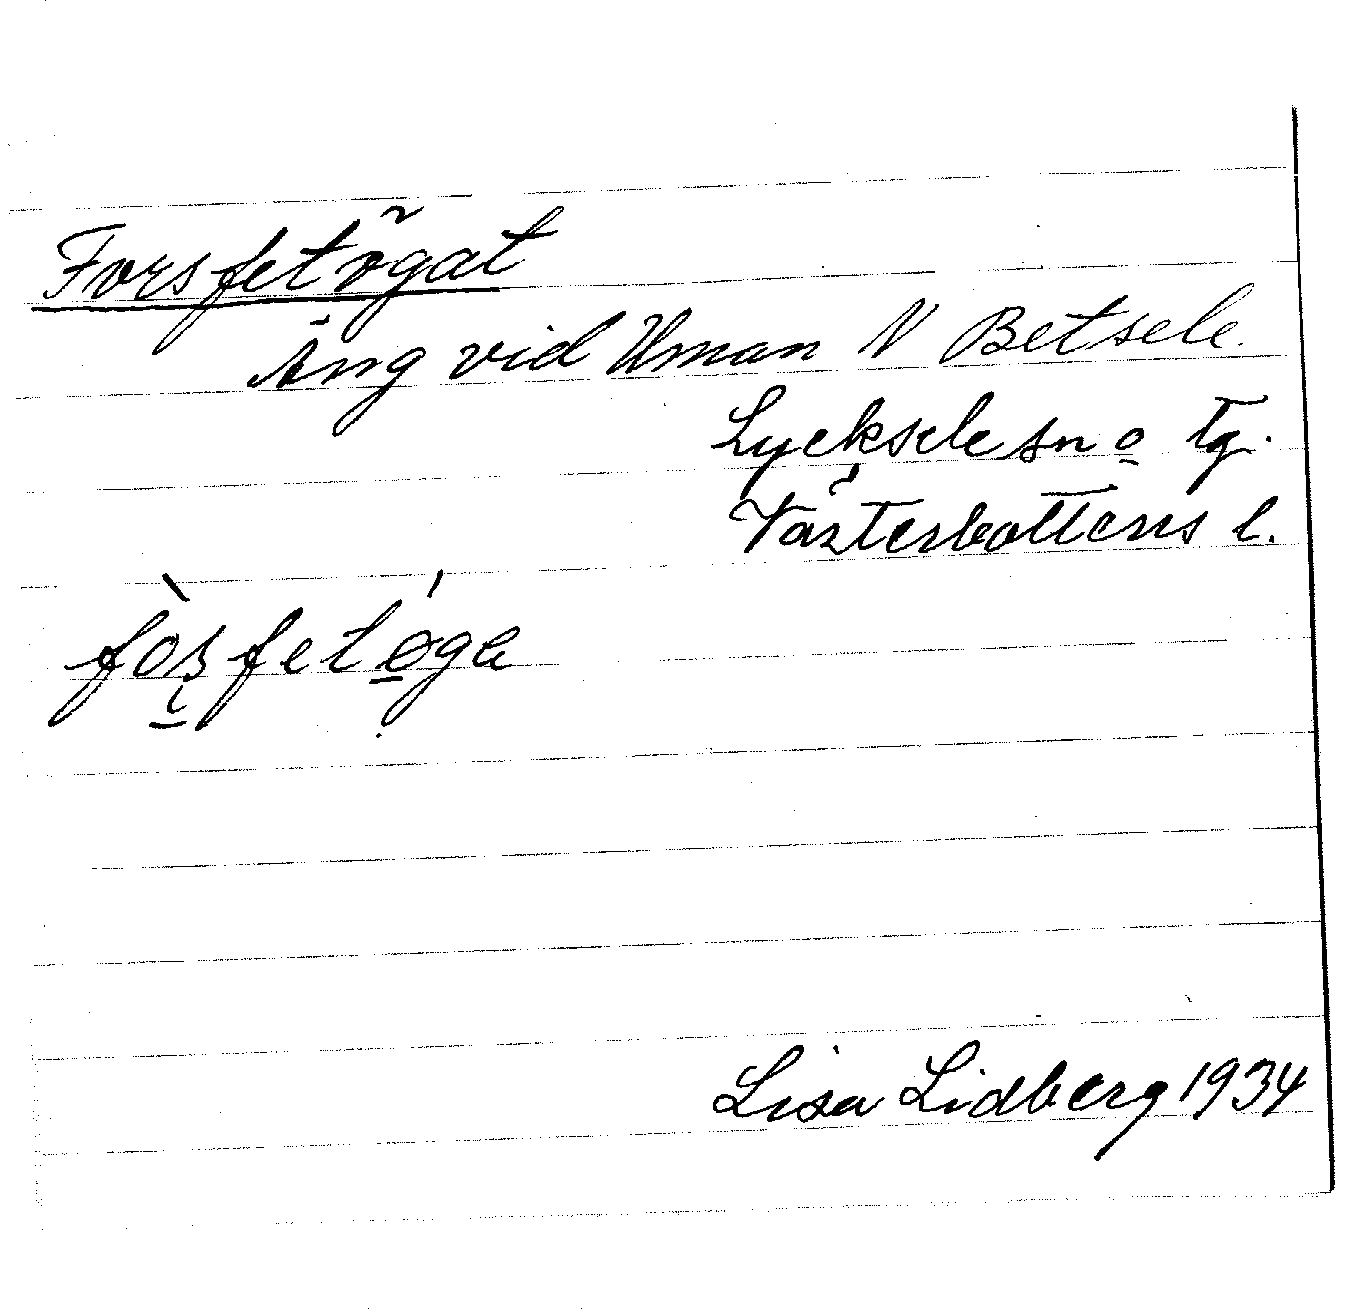 Forsfetögat
Äng vid Uman N Betsele.
Lycksele sn o tg.
Västerbottens l.
fòsfetøga
Lisa Lidberg 1934